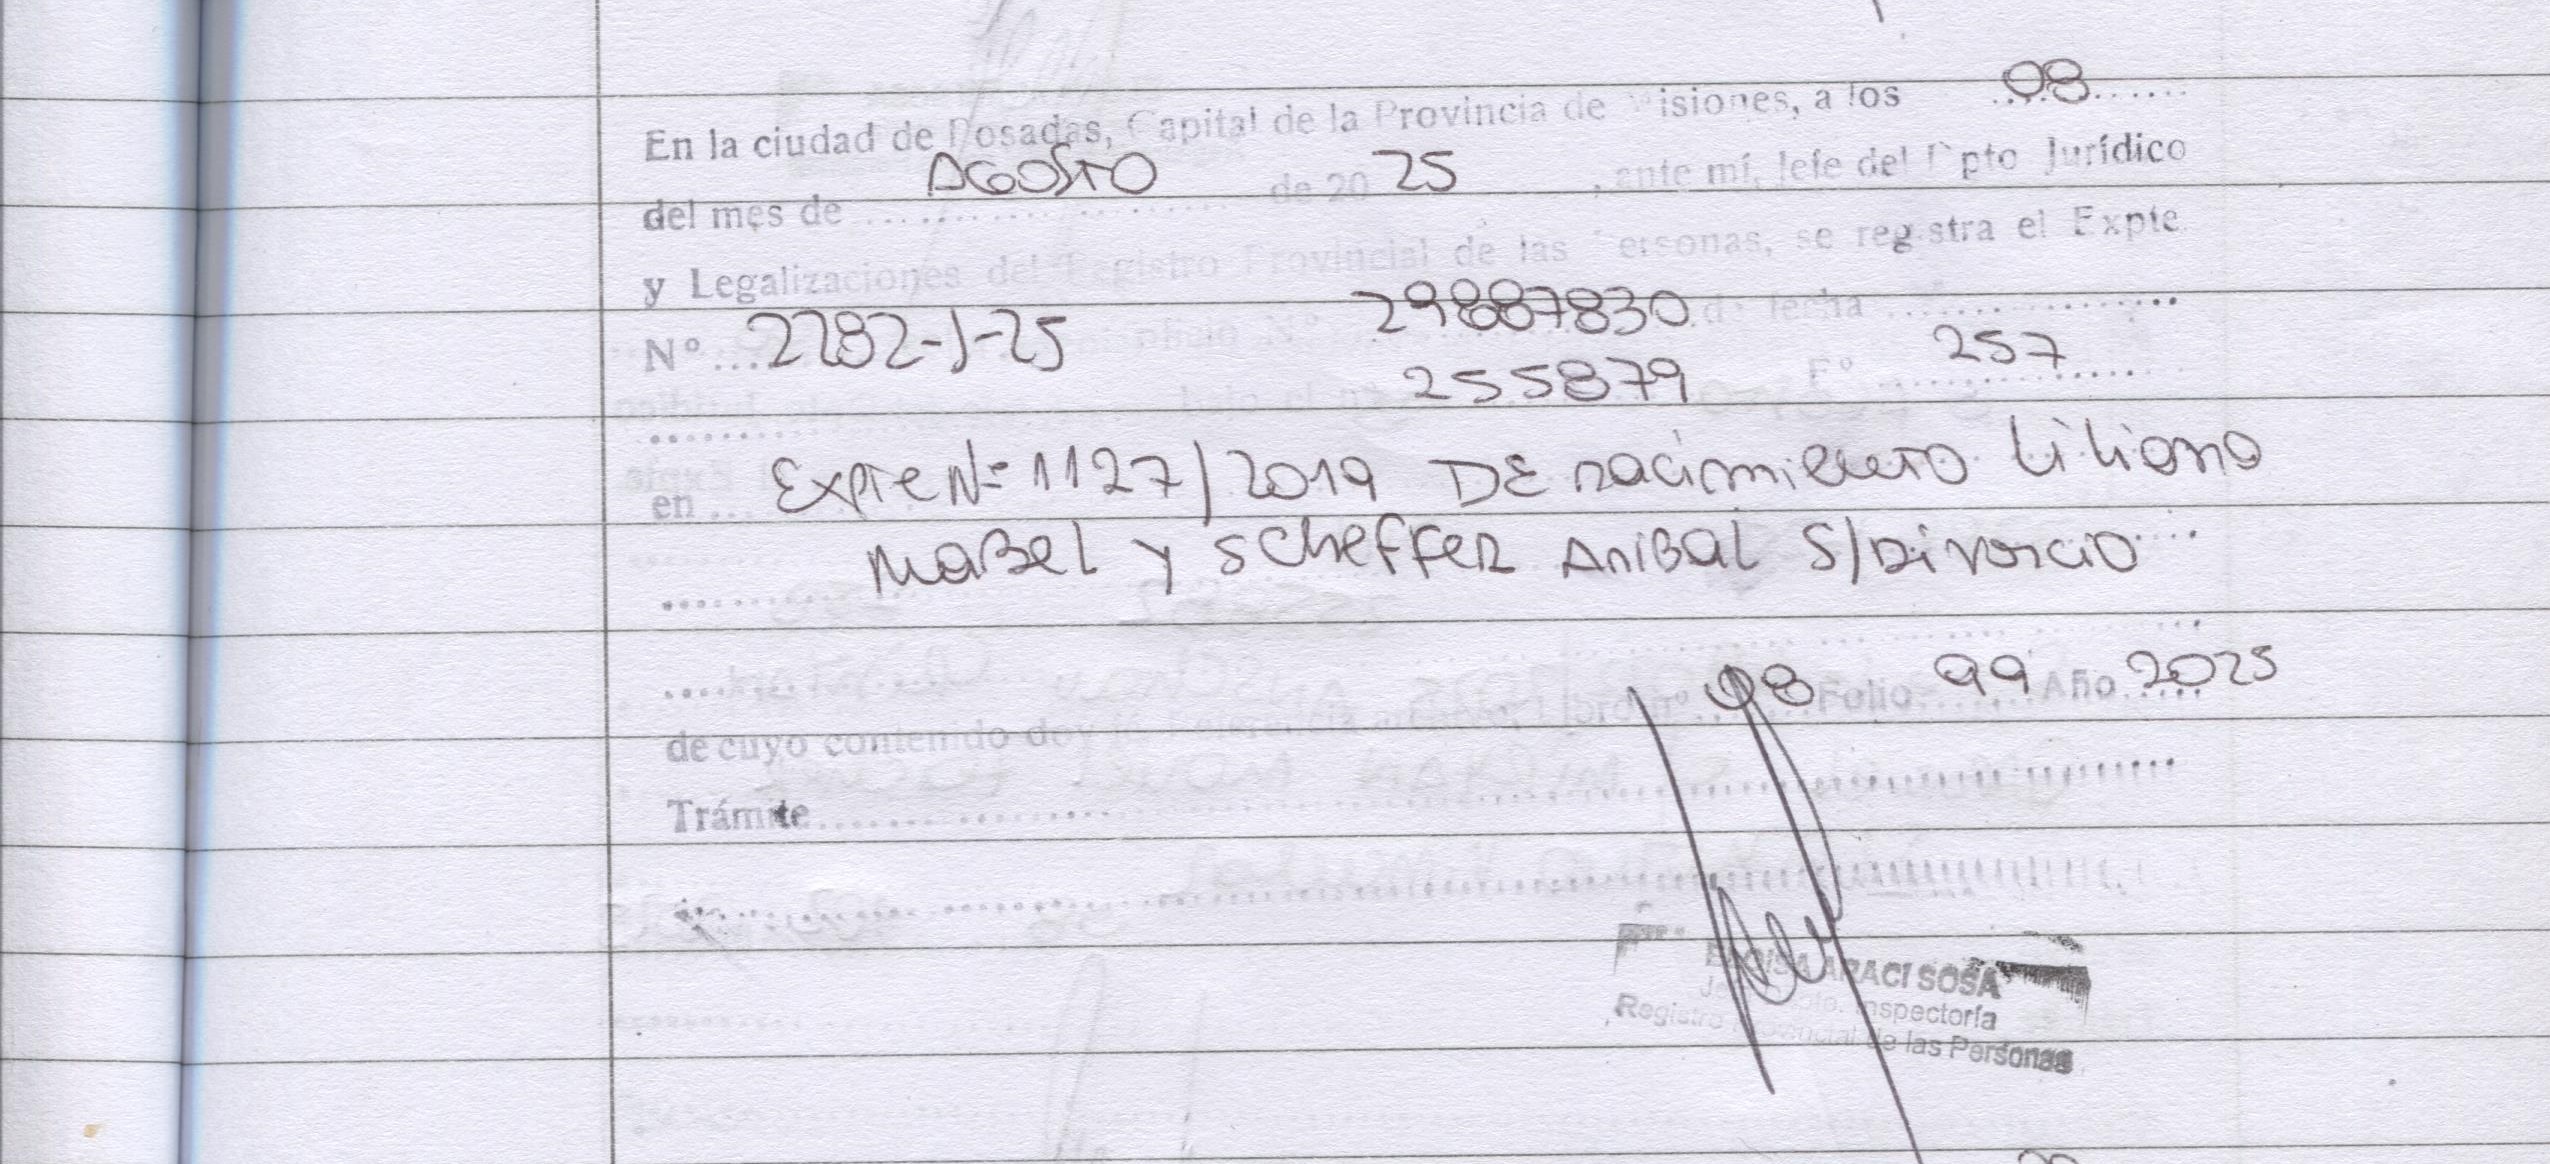 En la ciudad de Posadas, Capital de la Provincia de Misiones, a los 08
del mes de AGOSTO de 20 25, ante mí, Jefe del Dpto Jurídico
y Legalizaciones del Registro Provincial de las Personas, se registra el Expte
Nº 2282-J-25 29887830 de fecha
255879 Fº 257
en Expte Nº 1127/2019 DE nacimiento Liliana
MaBel y scheffer AniBal S/Divorcio
de cuyo contenido doy fé. Libro nº 08 Folio 99 Año 2025
Trámite
ELOISA ARACI SOSA
Inspectoría
Registro Provincial de las Personas